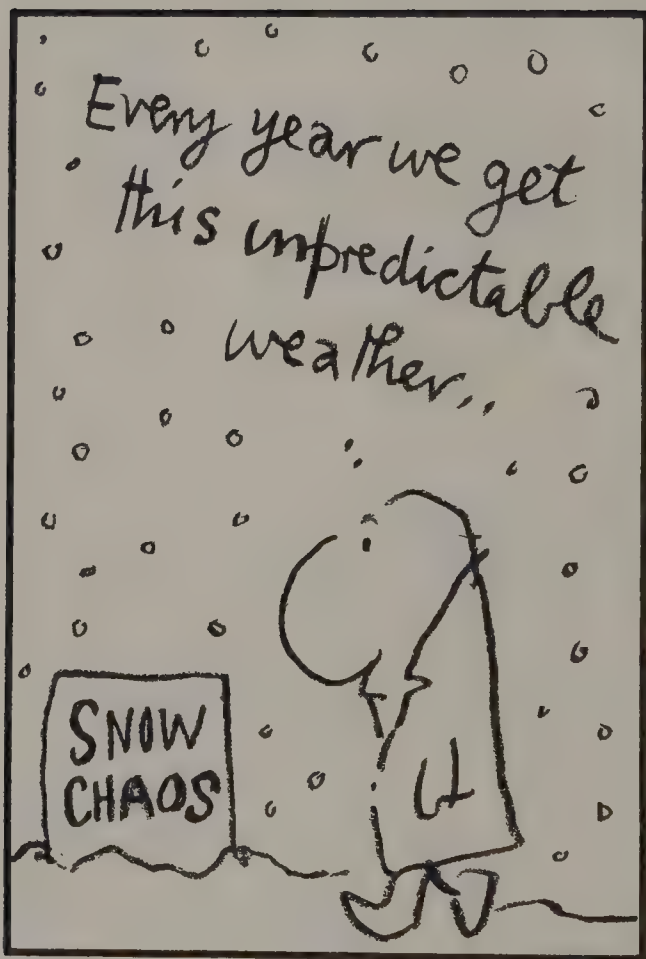 Every year we get
this unpredictable
weather..
SNOW
CHAOS